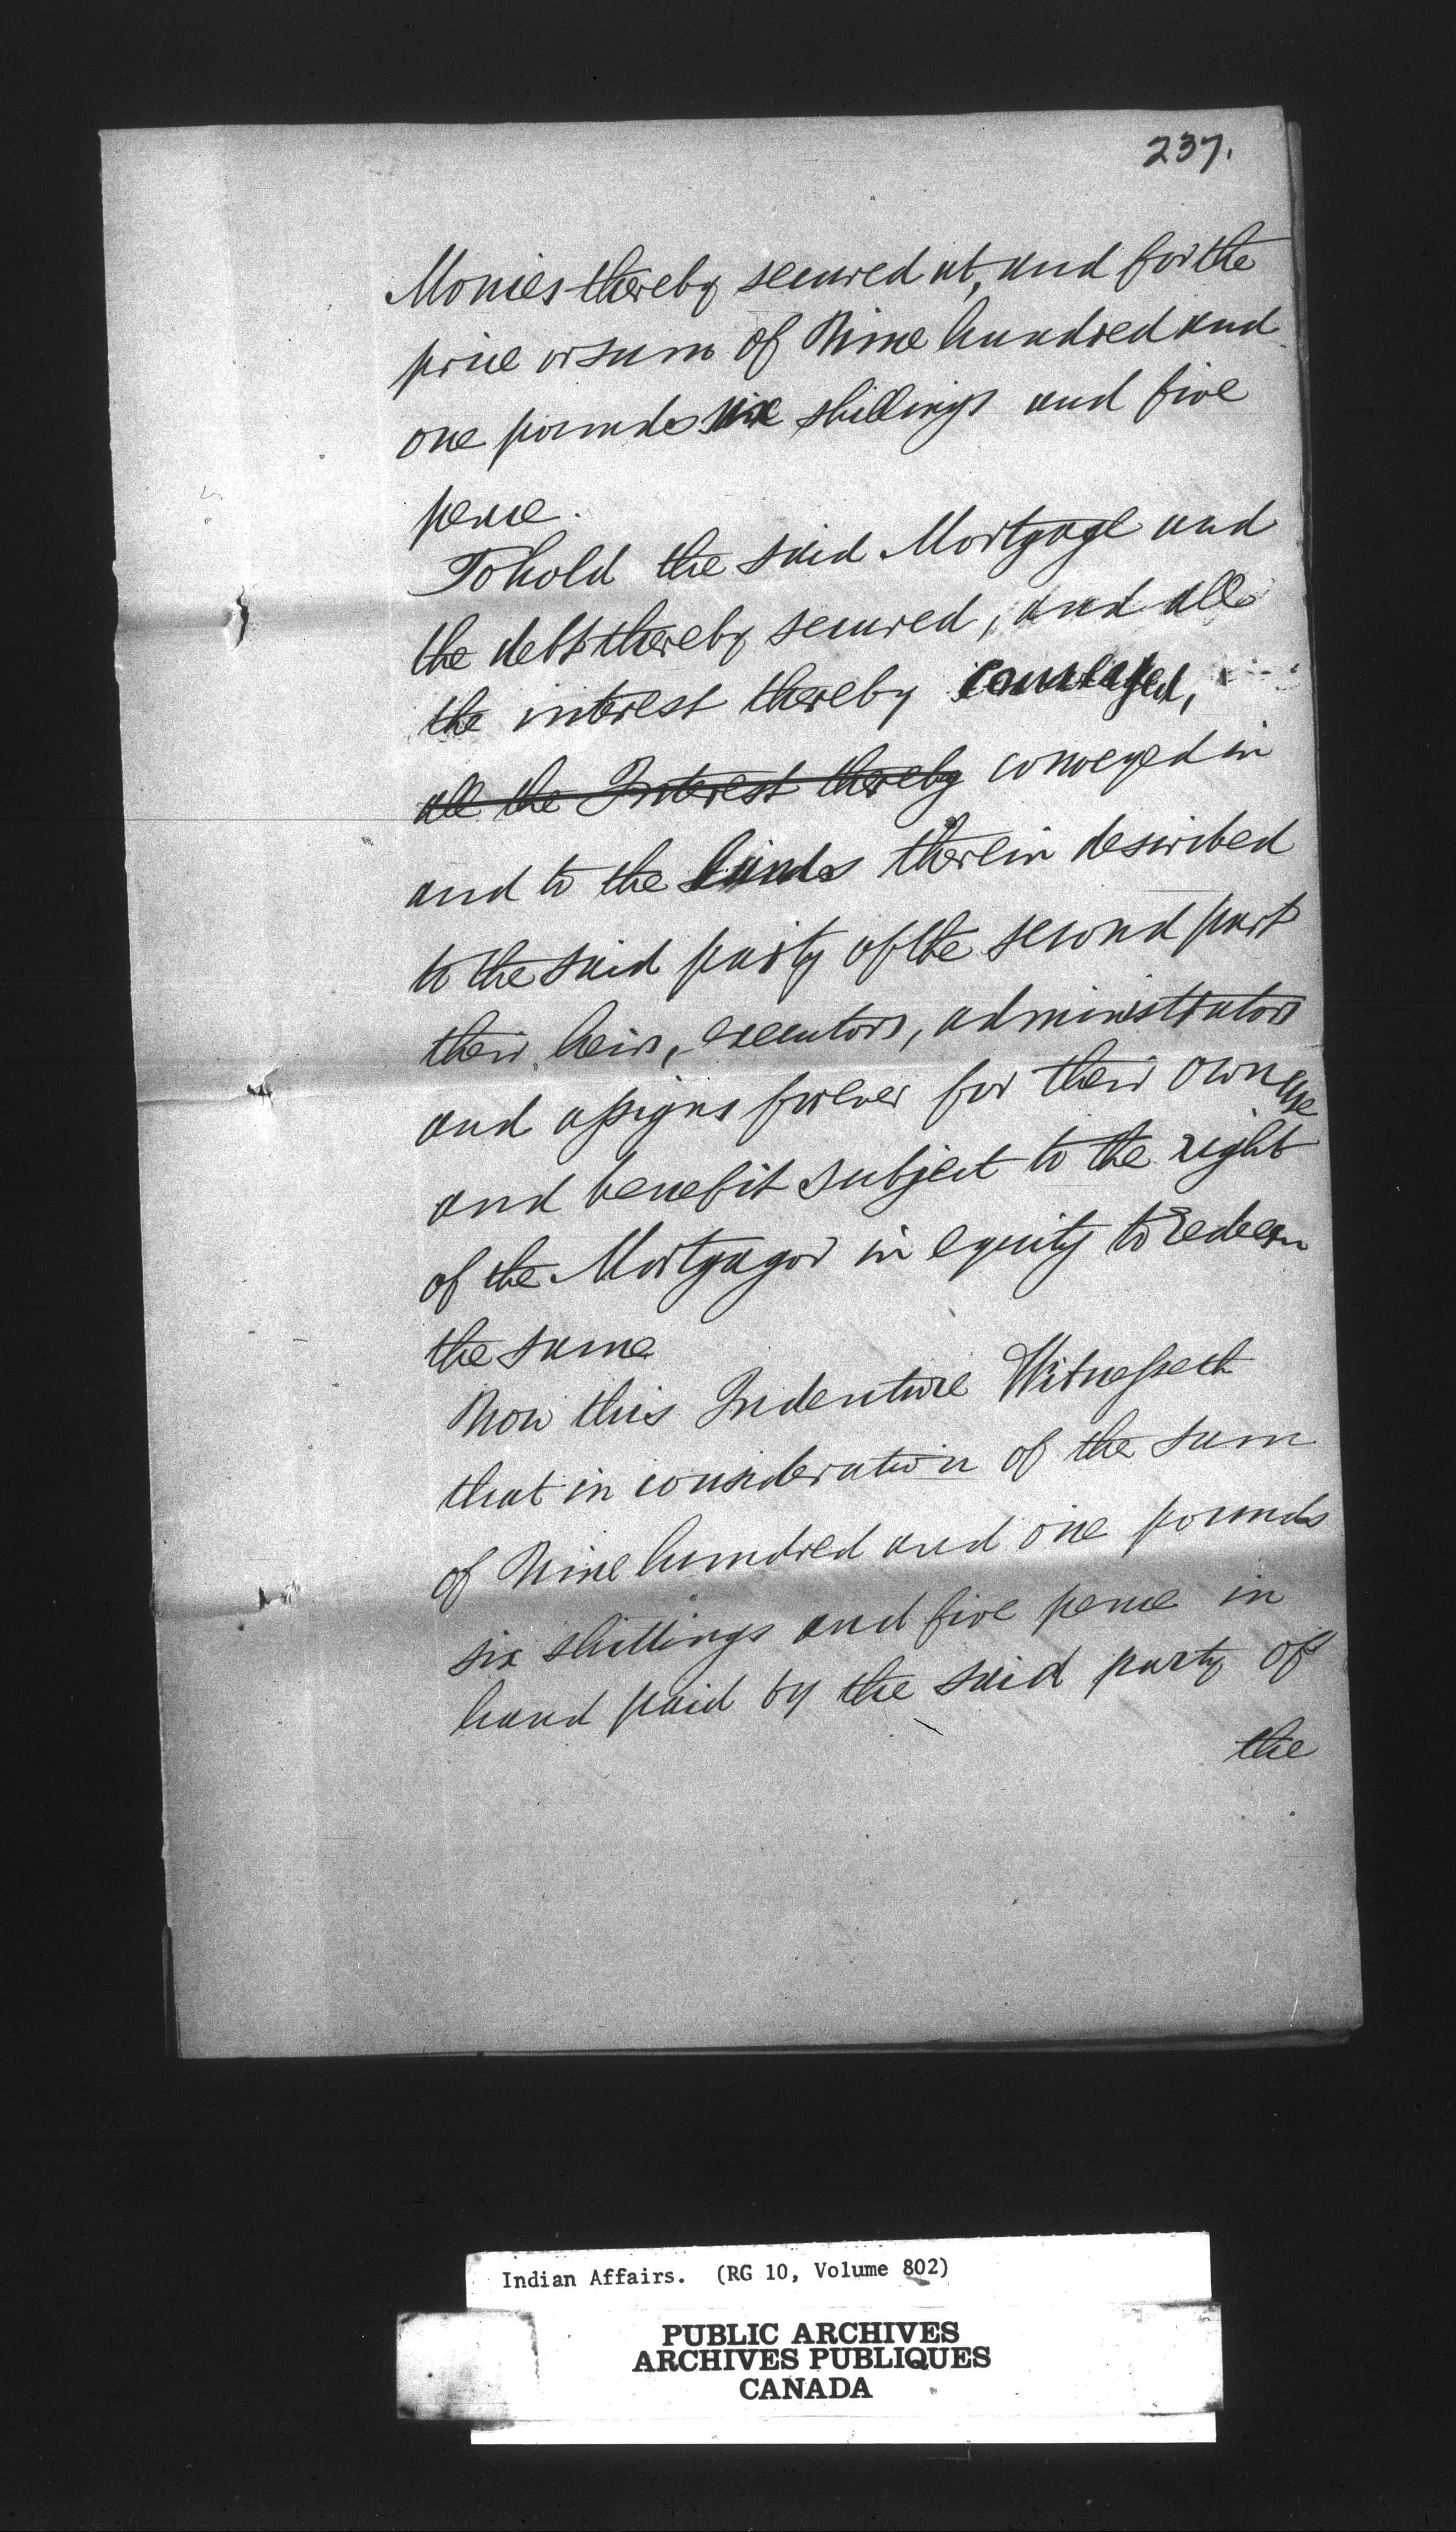 237.
Monies thereby secured at, and for the
price or sum of Nine hundred and
one pounds six shillings and five
pence.
To hold the said Mortgage and
the debt thereby secured, and all
the interest thereby
all the Interest thereby conveyed in
and to the lands therein described
to the said party of the second part
their heirs, executors, administrators
and assigns forever for their own use
and benefit subject to the right
of the Mortgagor in equity to redeem
the same
Now this Indenture Witnesseth
that in consideration of the sum
of Nine hundred and one pounds
six shillings and five pence in
hand paid by the said party of
the
Indian Affairs. (RG 10, Volume 802)
PUBLIC ARCHIVES
ARCHIVES PUBLIQUES
CANADA